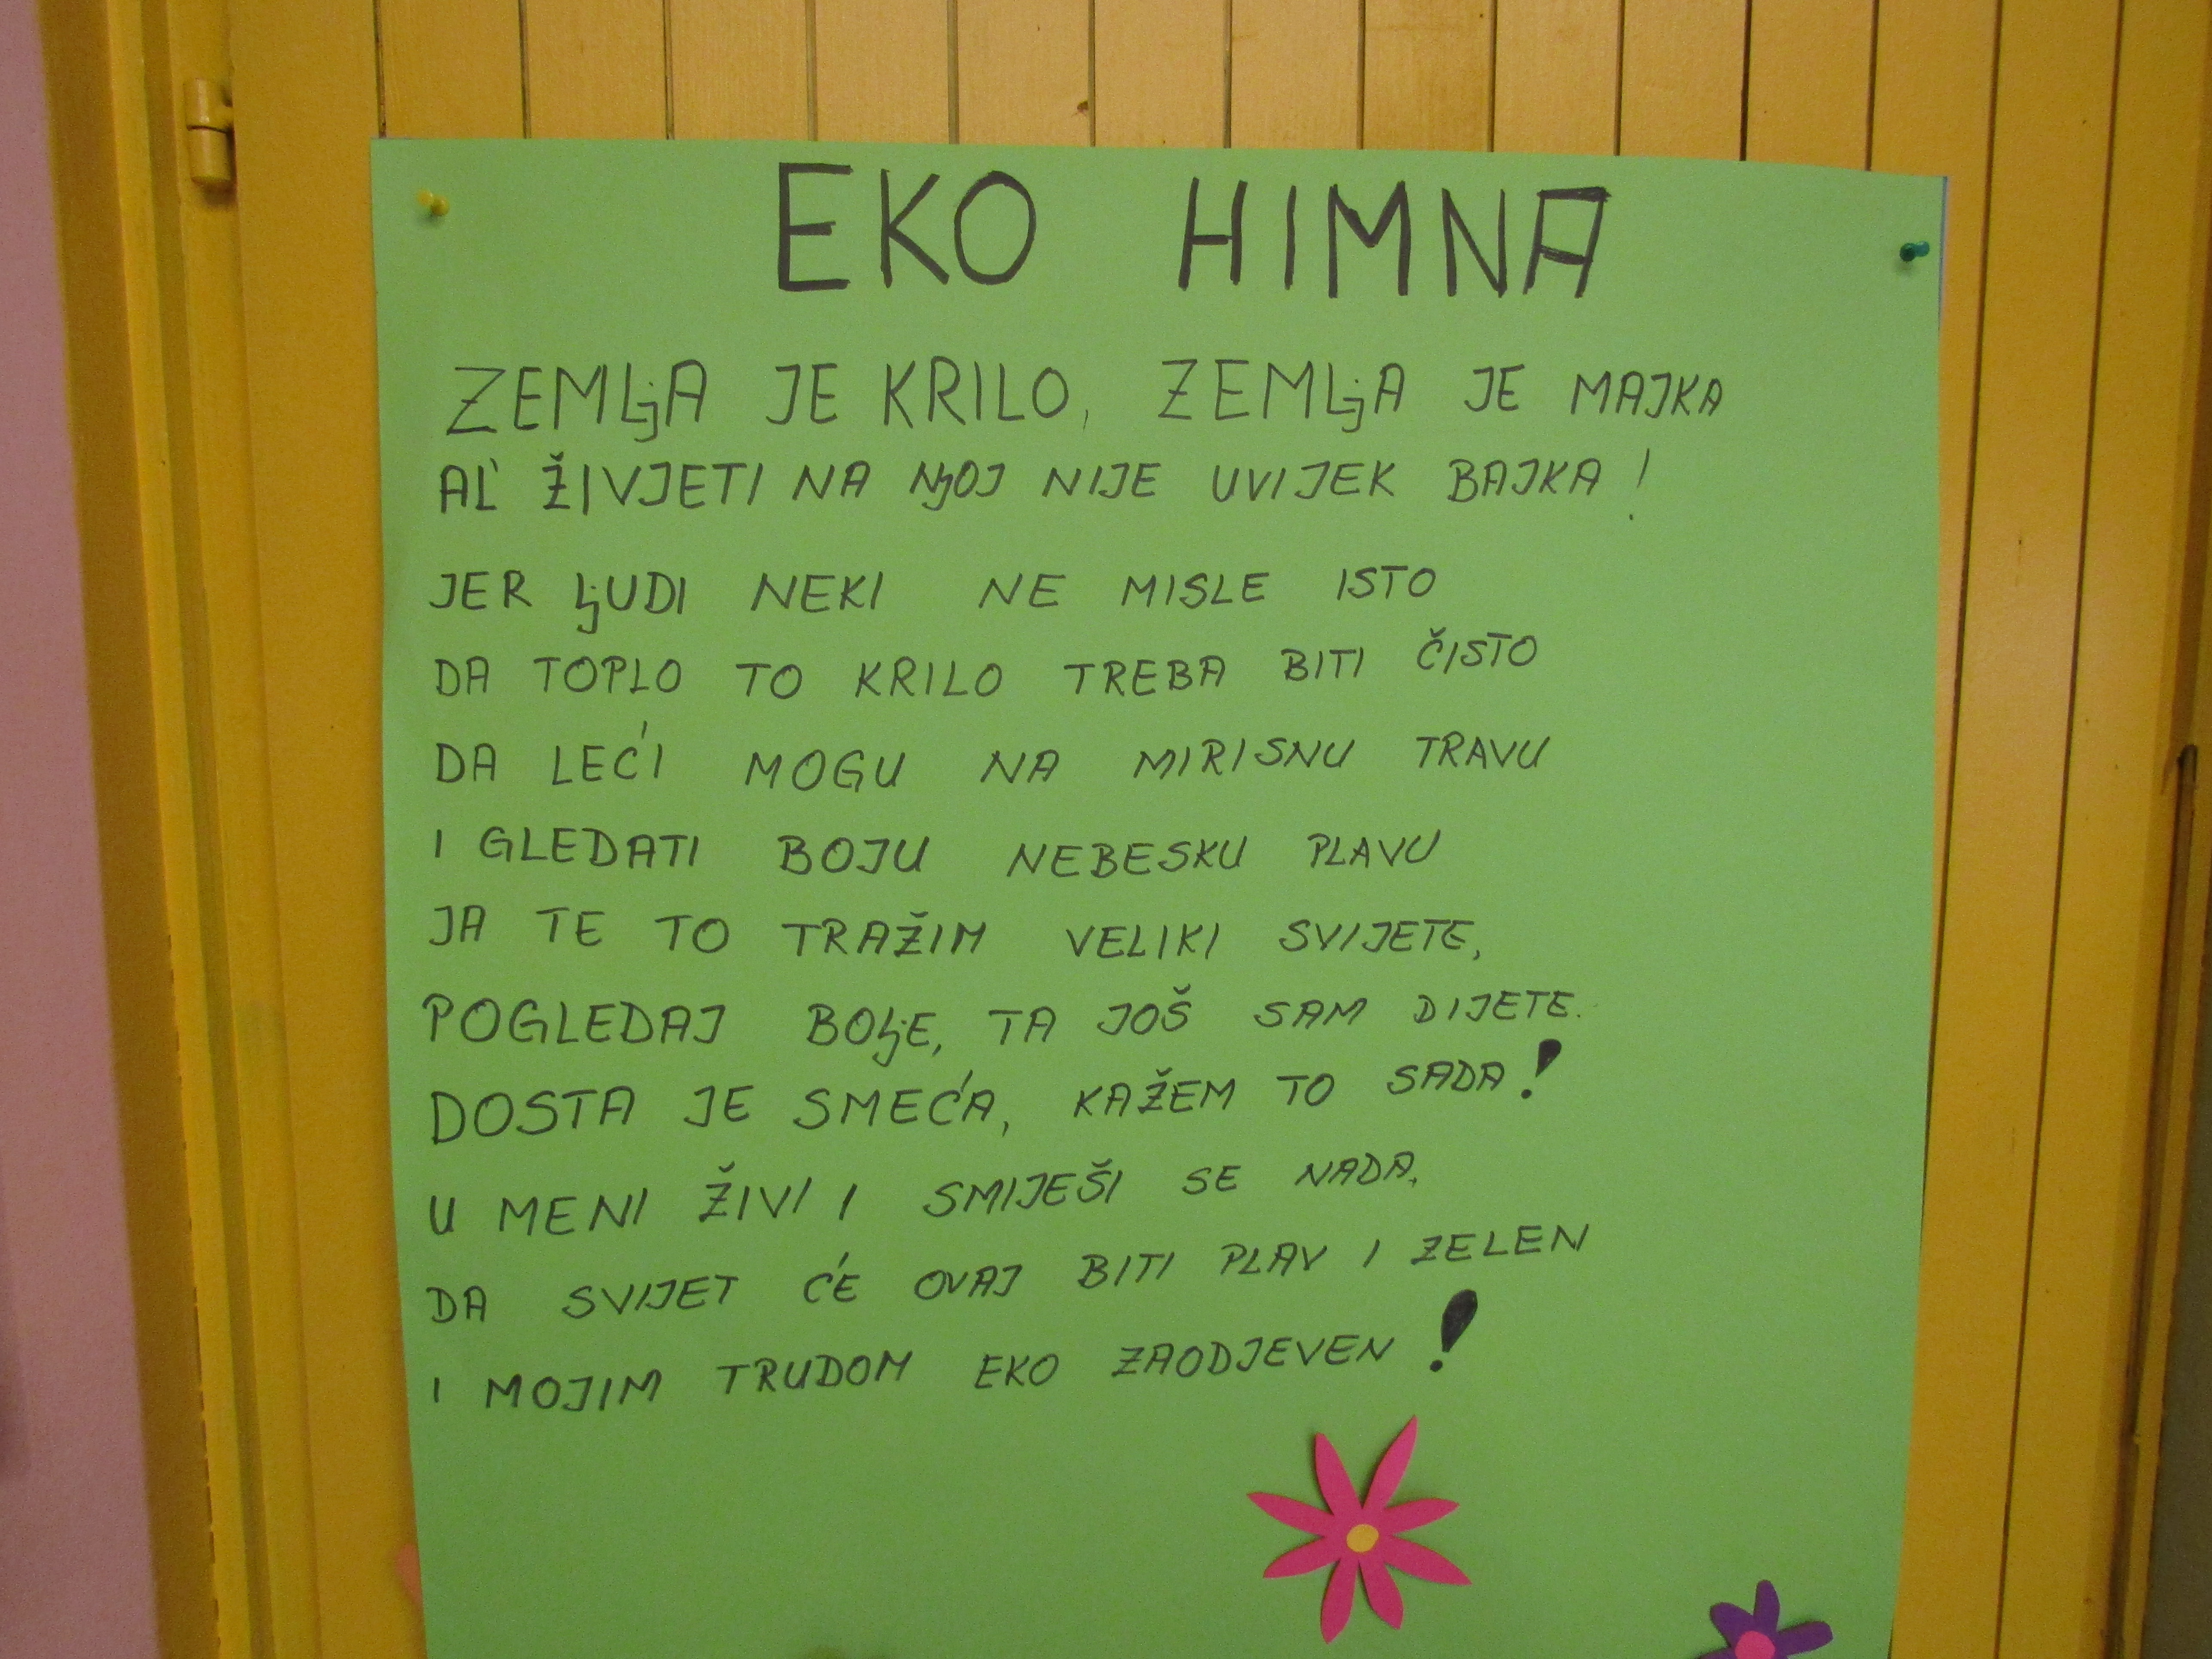 EKO HIMNA
ZEMLjA JE KRILO, ZEMLjA JE MAJKA
AL' ŽIVJETI NA NjOJ NIJE UVIJEK BAJKA!
JER LjUDI NEKI NE MISLE ISTO
DA TOPLO TO KRILO TREBA BITI ČISTO
DA LEĆI MOGU NA MIRISNU TRAVU
I GLEDATI BOJU NEBESKU PLAVU
JA TE TO TRAŽIM VELIKI SVIJETE,
POGLEDAJ BOLjE, TA JOŠ SAM DIJETE.
DOSTA JE SMEĆA, KAŽEM TO SADA!
U MENI ŽIVI I SMIJEŠI SE NADA,
DA SVIJET ĆE OVAJ BITI PLAV I ZELEN
I MOJIM TRUDOM EKO ZAODJEVEN!